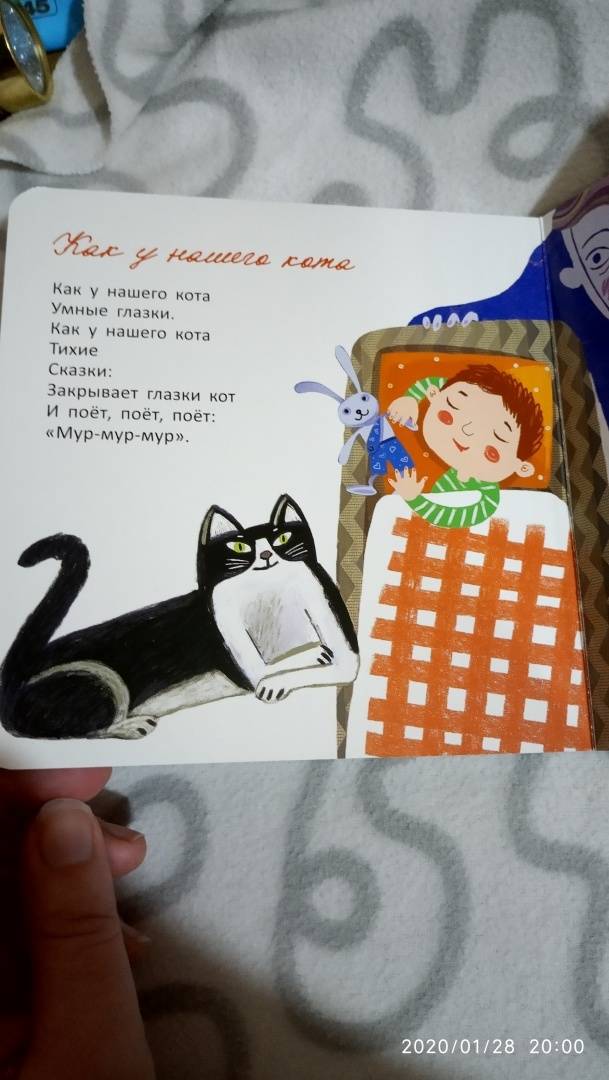 45
Как у нашего кота
Как у нашего кота
Умные глазки.
Как у нашего кота
Тихие
Сказки:
Закрывает глазки кот
И поёт, поёт, поёт:
«Мур-мур-мур».
2020/01/28 20:00